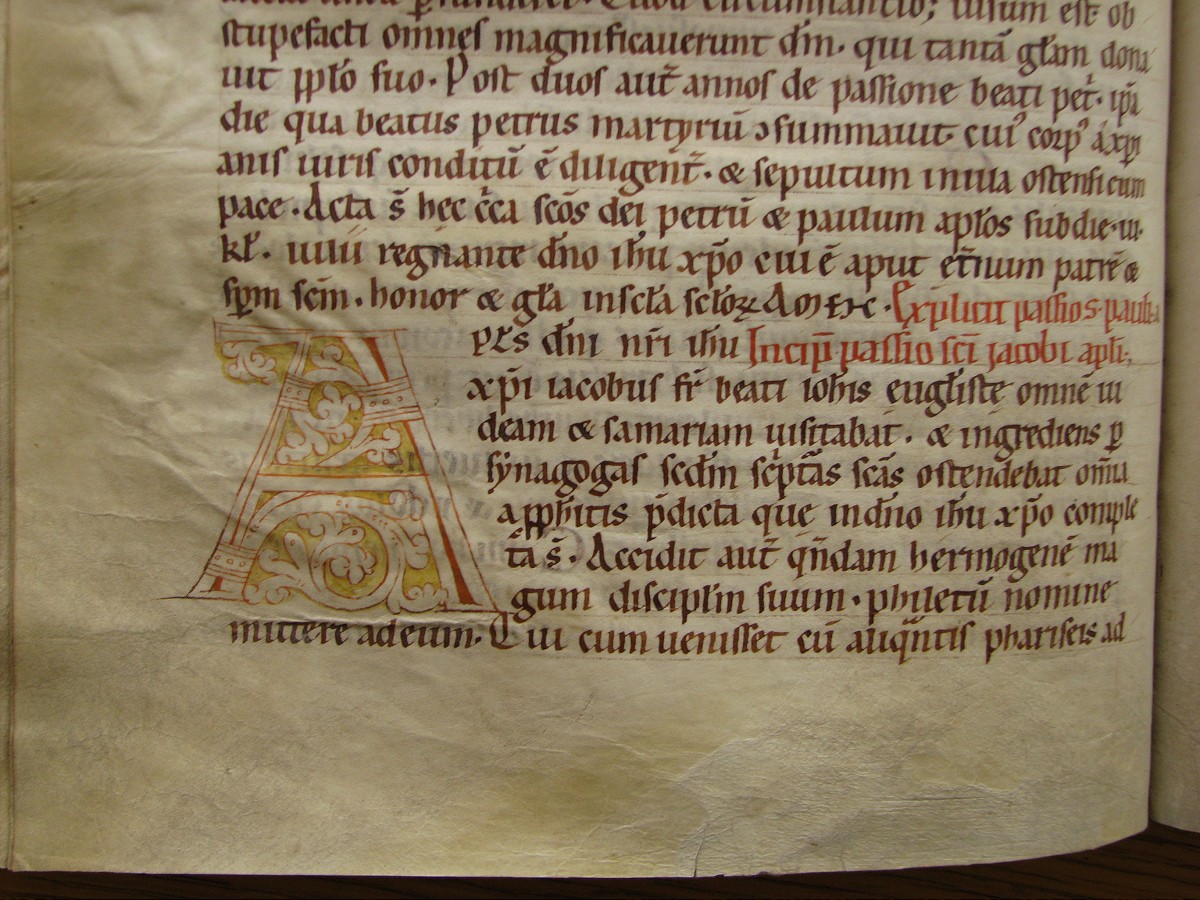 circumstantib; uisum est ob
stupefacti omnes magnificauerunt dm̄. qui tantā gl̄am dona
uit ppl̄o suo. Post duos aut̄ annos de passione beati pet̄. ip̄a
die qua beatus petrus martyriū ɔsummauit. cui᾽ corp᾽
anis iuris conditū ē diligent̄. & sepultum in uia ostensi cum
pace. Acta s̄ hec c̄ca sc̄os dei petrū & paulum ap̄los sub die .iii.
kl̄. iulii regnante dn̄o ih̄u xp̄o cui ē aput et̄num patrē &
sp̄m sc̄m. honor & gl̄a in scl̄a scl̄oꝝ AMEN. Explicit passio s. pauli
A PL̄S dn̄i nr̄i ih̄u Incip̄ passio sc̄i jacobi apl̄i;
xp̄i iacobus fr̄ beati ioh̄is eugl̄istę omnē iu
deam & samariam uisitabat. & ingrediens p̄
synagogas scd̄m sc̄pt̄as sc̄as ostendebat om̄ia
a pph̄itis p̄dicta que in dn̄o ih̄u xp̄o comple
ta s̄. Accidit aut̄ qn̄dam hermogenē ma
gum discipl̄m suum. philetū nomine
mittere ad eum. Qui cum uenisset cū aliqᷓntis phariseis ad